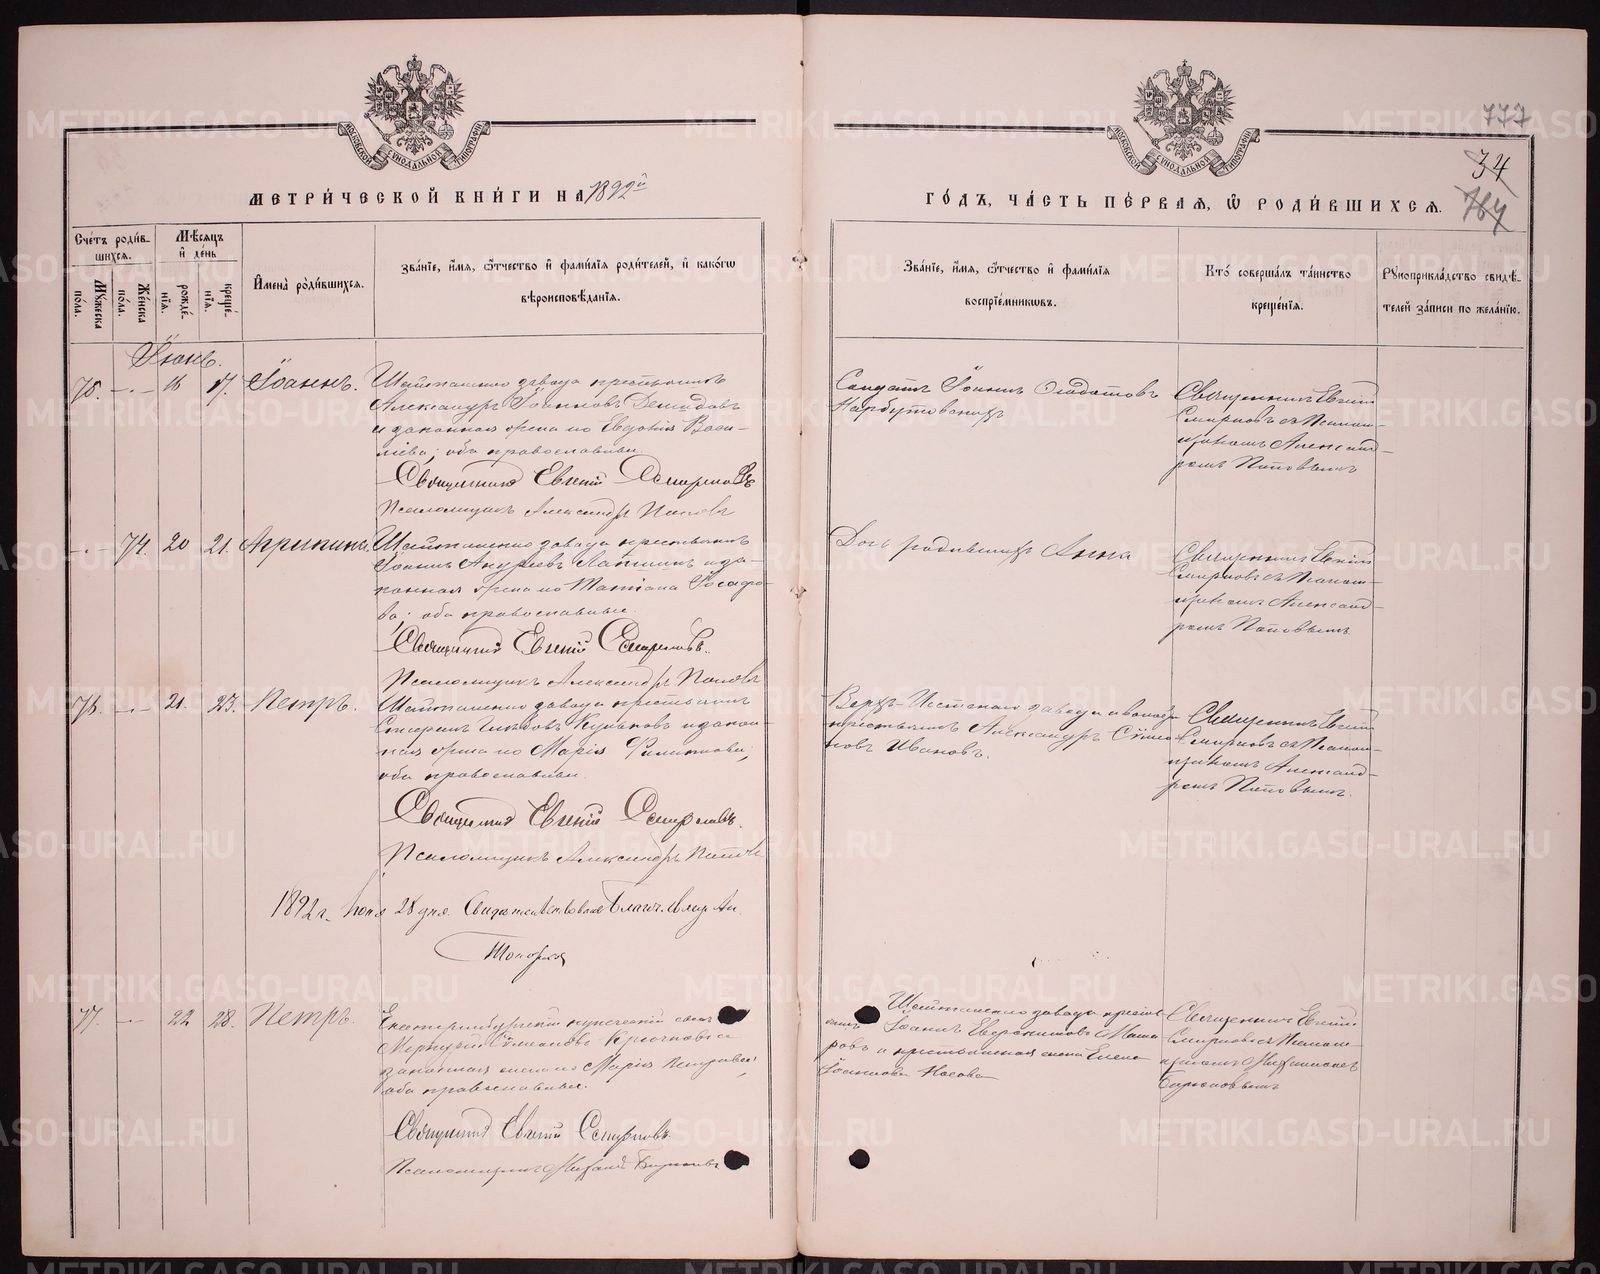 777
34
764
МОСКОВСКОЙ СѴНОДАЛЬНОЙ ТИПОГРАФІИ
МОСКОВСКОЙ СѴНОДАЛЬНОЙ ТИПОГРАФІИ
МЕТРИ́ЧЕСКОЙ КНИ́ГИ НА 1892й
ГО́ДЪ, ЧА́СТЬ ПЕ́РВАЯ, Ѿ РОДИ́ВШИХСЯ.
Сче́тъ роди́в-
шихся.
Му́жеска пола.
Же́нска пола.
Мѣ́сяцъ и де́нь
рожде́-
нїя.
креще́-
нїя.
Имена̀ роди́вшихся.
Зва́нїе, и́мя, ѻ́тчество и фами́лїя роди́телей, и како́гѡ
вѣроисповѣ́данїя.
Зва́нїе, и́мя, ѻ́тчество и фами́лїя
воспрїе́мникѡвъ.
Кто̀ соверша́лъ та́инство
креще́нїя.
Рукоприкла́дство свидѣ́-
телей за́писи по жела́нїю.
Іюнь.
75. 16 17. Іоаннъ.
Шайтанскаго завода крестьянинъ
Александръ Іоанновъ Демидовъ
и законная жена его Евдокія Васи-
ліева; оба православные.
Священникъ Евгеній Смирновъ
Псаломщикъ Александръ Поповъ
Солдатъ Іоаннъ
Священникъ Евгеній
Смирновъ съ Псалом-
щикомъ Александ-
ромъ Поповымъ
74. 20 21. Агрипина.
Шайтанскаго завода крестьянинъ
Іоаннъ Андреевъ Лапшинъ и за-
конная жена его Татіана
оба православные.
Священникъ Евгеній Смирновъ.
Псаломщикъ Александръ Поповъ
Дочь родившихъ Анна
Священникъ Евгеній
Смирновъ съ Псалом-
щикомъ Александ-
ромъ Поповымъ.
76. 21. 23. Петръ.
Шайтанскаго завода крестьянинъ
и закон-
ная жена его Марія Филиппова;
оба православные.
Священникъ Евгеній Смирновъ.
Псаломщикъ Александръ Поповъ
Верхъ-Исетскаго завода
крестьянинъ Александръ Симео-
новъ Ивановъ.
Священникъ Евгеній
Смирновъ съ Псалом-
щикомъ Александ-
ромъ Поповымъ.
1892 г. Іюня 28 дня. Свидѣтельствовалъ Благоч.
Топорковъ
77. 22 28. Петръ.
Екатеринбургскій купеческій сынъ
Меркурій Симеоновъ и
законная жена его Марія Петрова;
оба православные.
Священникъ Евгеній Смирновъ.
Псаломщикъ Михаилъ Бирюковъ
Шайтанскаго завода кресть-
янинъ Іоаннъ Мака-
ровъ и крестьянская жена Елена
Іоаннова Носова
Священникъ Евгеній
Смирновъ съ Псалом-
щикомъ Михаиломъ
Бирюковымъ
METRIKI.GASO-URAL.RU